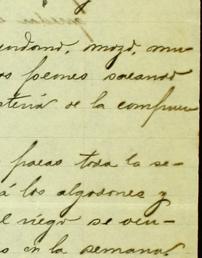 quedan
mozo, mu
os peones sacando
de la compra
pocas toda la se-
á los algodones y
el riego se ocu-
s en la semana